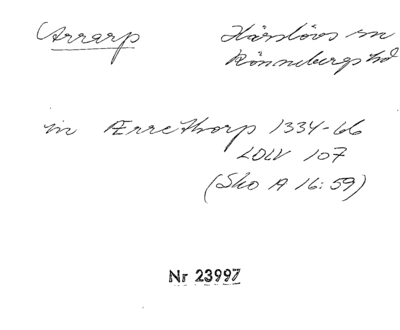 Arrarp Härslövs sn
Rönnebergs hd
in Ærrethorp 1334-66
LDLV 107
(Sko A 16:59)
Nr 23997